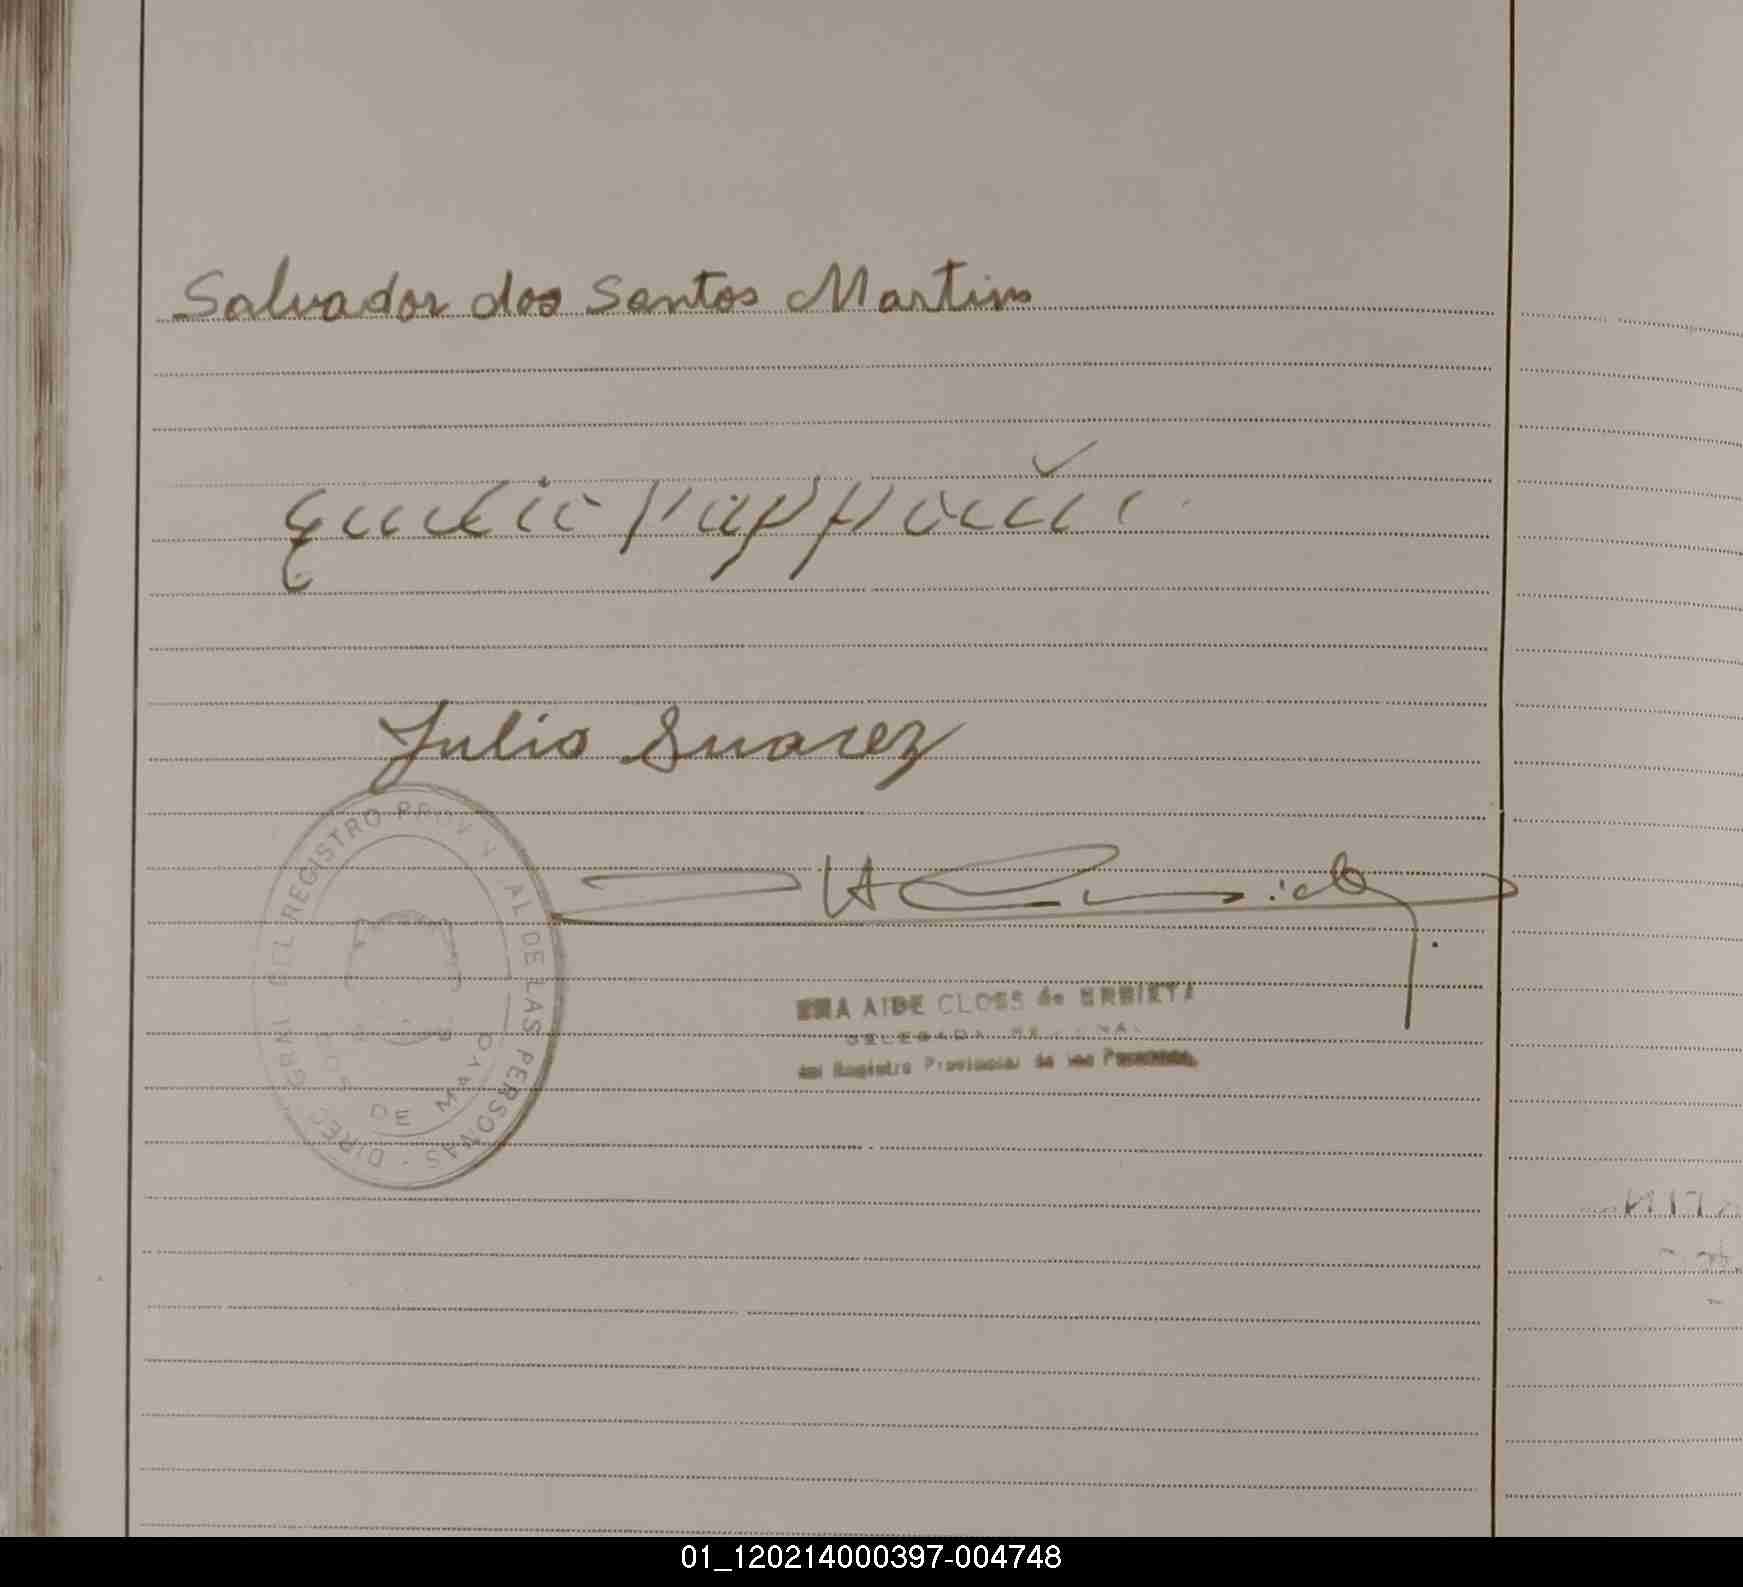 Salvador dos Santos Martins
Julio Suarez
DIREC GRAL DEL REGISTRO PROV AL DE LAS PERSONAS
DOS DE MAYO
AIDE CLOSS de URRIETA
DELEGADA
del Registro Provincial de las Personas
01_120214000397-004748